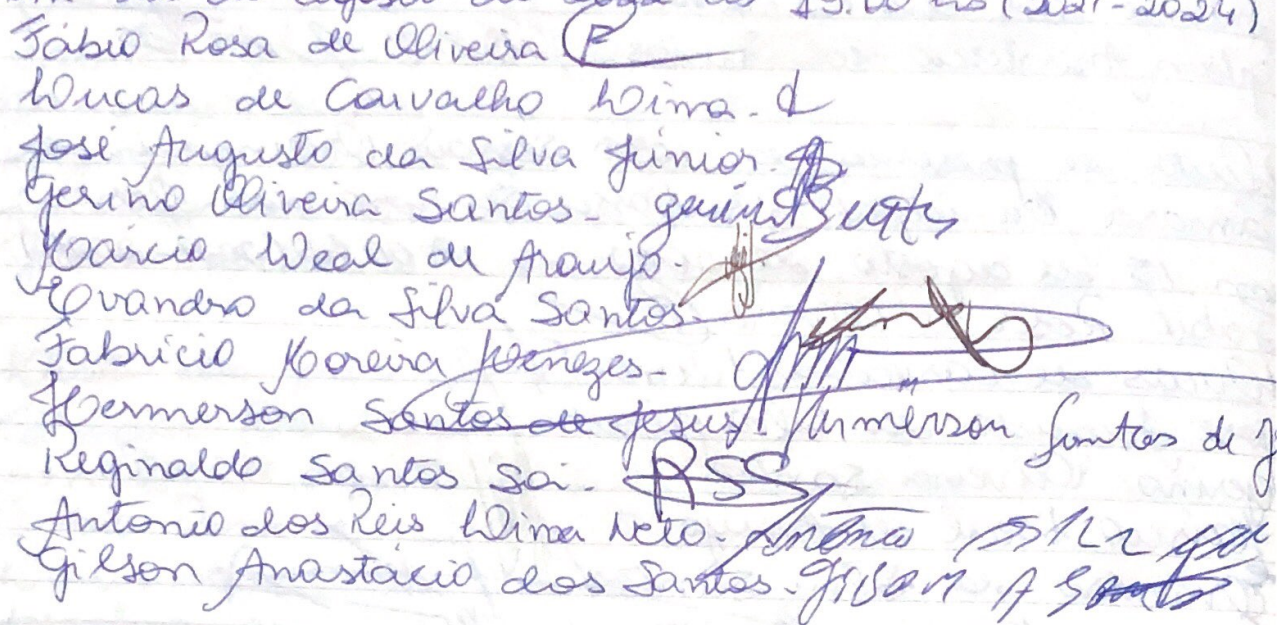 19:00 hs (2021-2024)
Fábio Rosa de Oliveira
Lucas de Carvalho Lima.
José Augusto da Silva Júnior
Gerino Oliveira Santos.
Márcio Leal de Araujo.
Evandro da Silva Santos.
Fabrício Moreira Menezes.
Hermerson Santos de Jesus. Hirmérson Santos de J
Reginaldo Santos Sá. RSS
Antonio dos Reis Lima Neto. Antônio
Gilson Anastácio dos Santos. Gilson A Santos